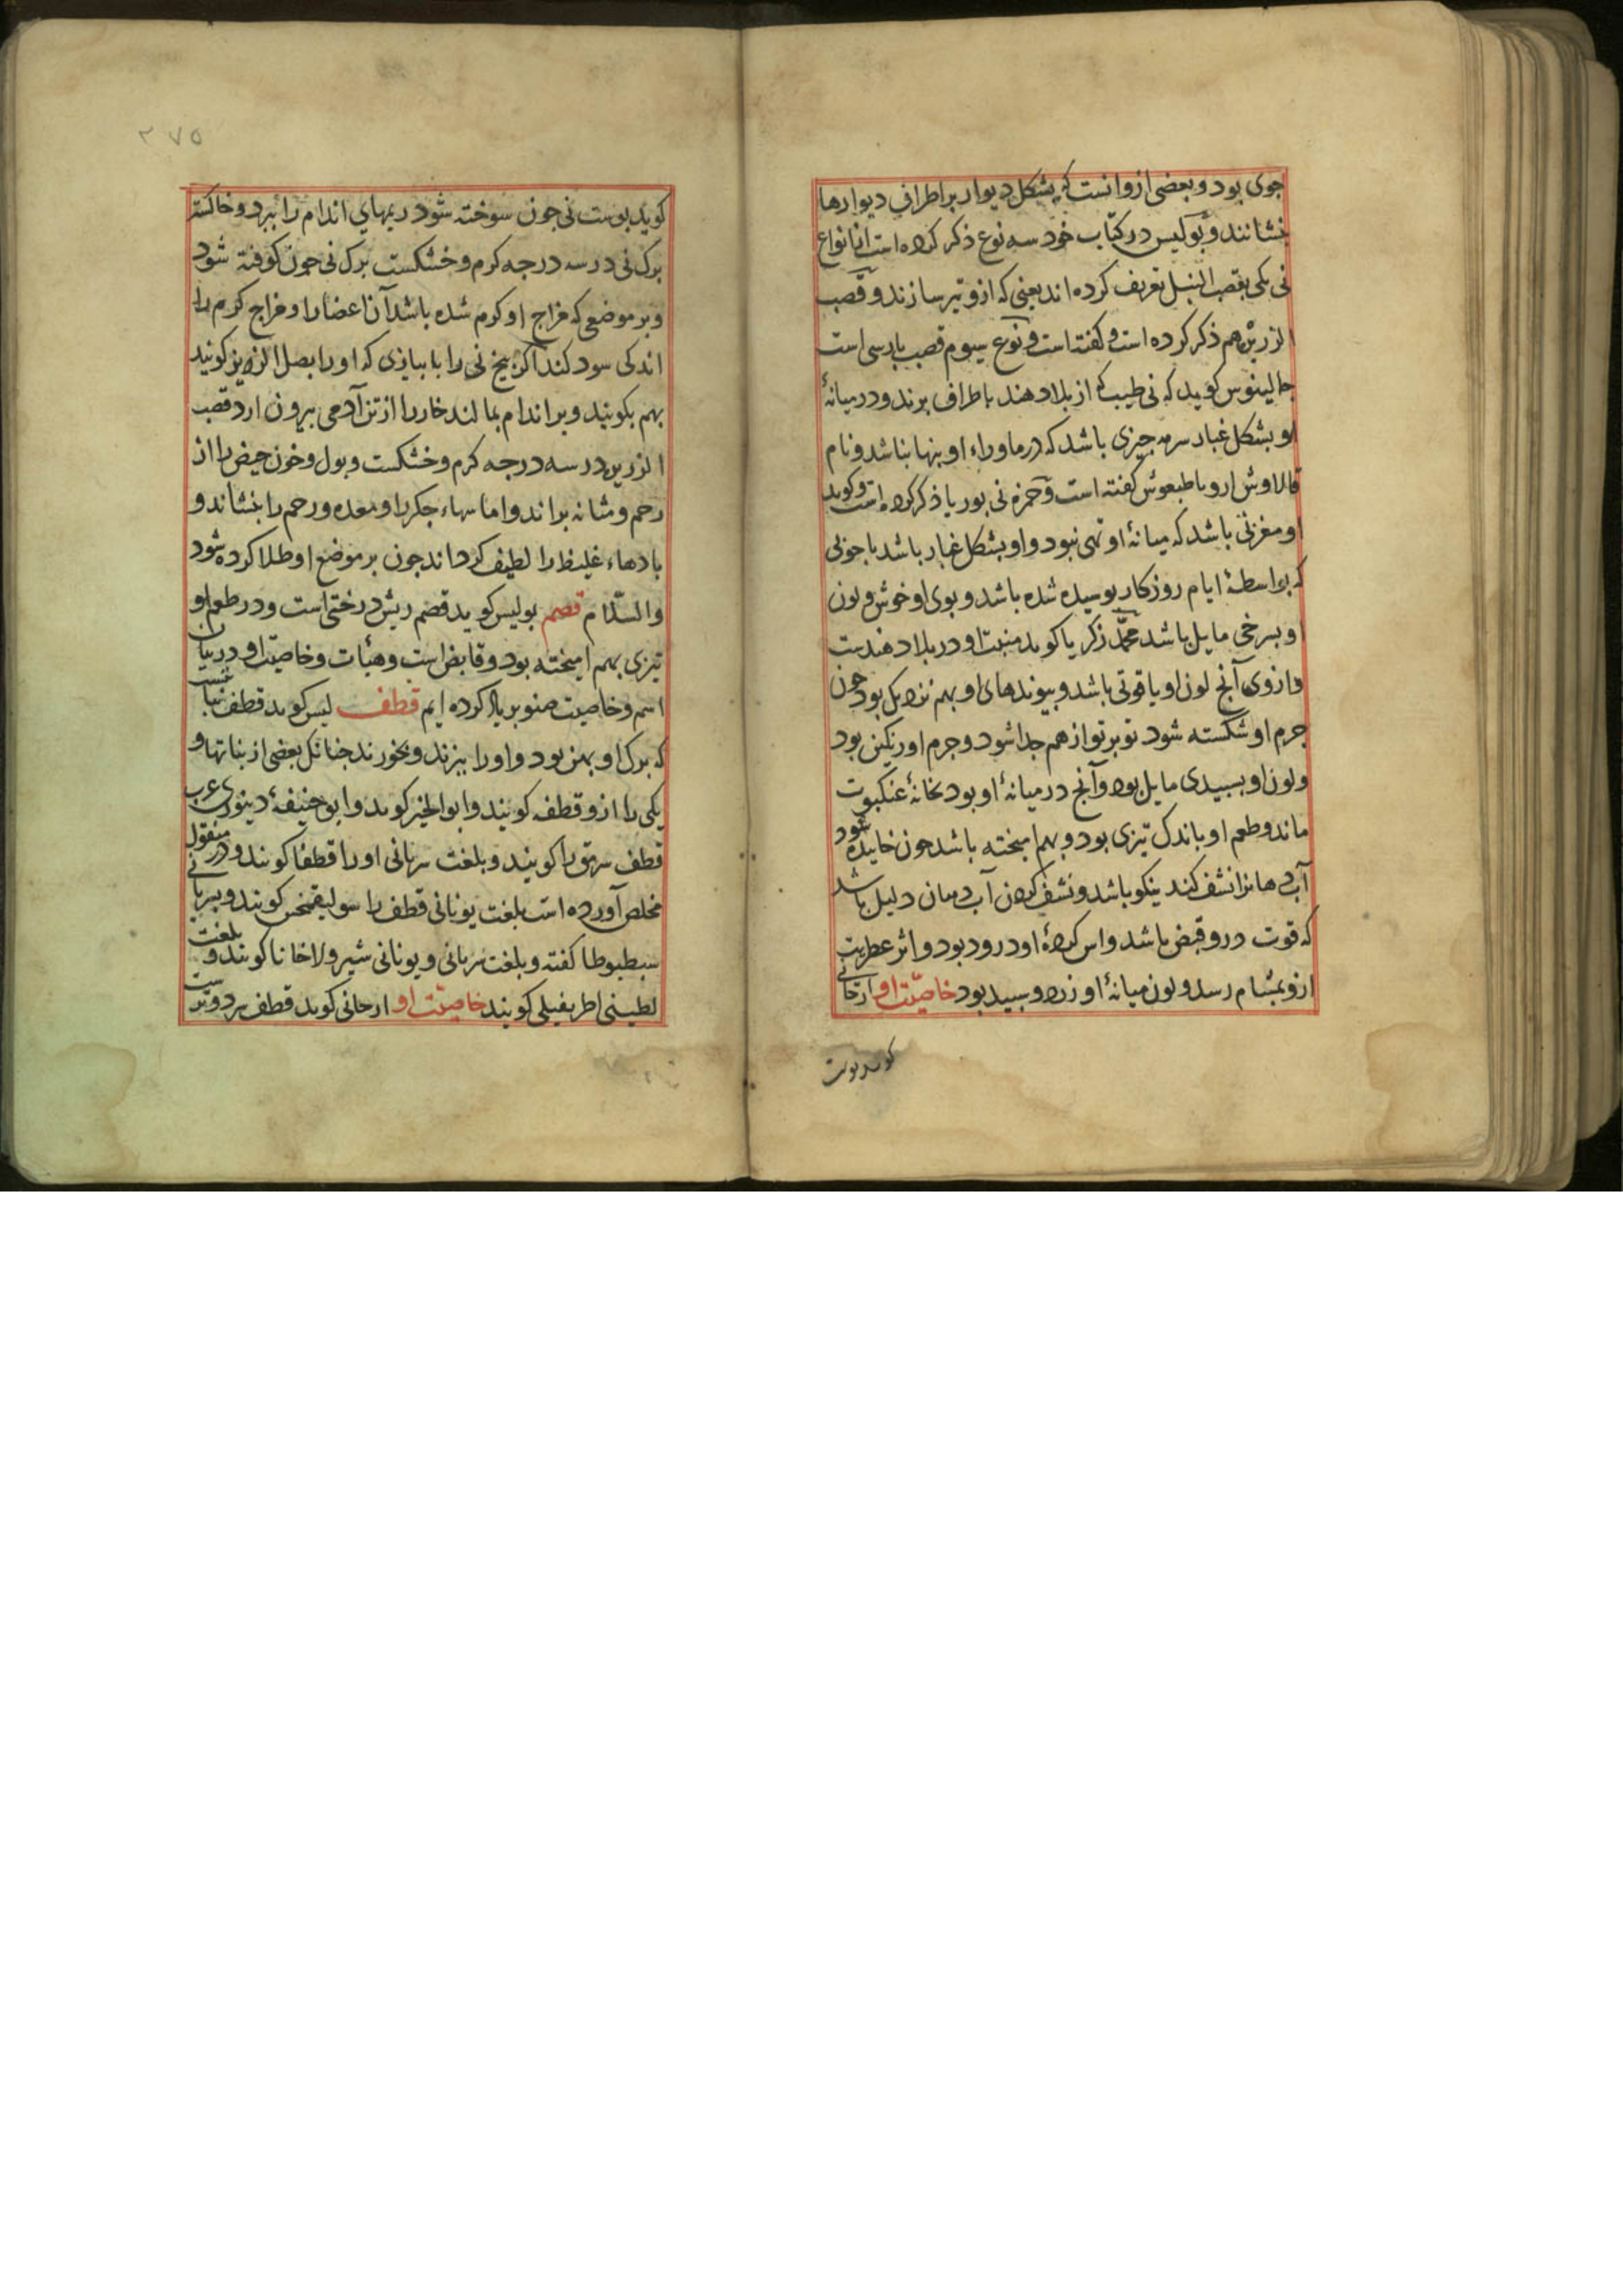 جوی بود و بعضی ازو انست که بشکل دیوار بر اطراف دیوارها
بنشانند و بولیس در کتاب خود سه نوع ذکر کرده است از انواع
نی یکی بقصب النبل تعریف کرده اند یعنی که ازو تیر سازند و قصب
الزرین هم ذکر کرده است و کفته است و نوع سیوم قصب بارسی است
جالینوس کوید که نی طیب که از بلاد هند باطراف برند و در میانهٔ
او بشکل غبار سرمه جیزی باشد که در ماوراء او بنها نباشد و نام
کفته است و حمزه نی بوریا ذکر کرده است و کوید
او مغزنی باشد که میانهٔ او تهی نبود و او بشکل غبار باشد با جوبی
که بواسطهٔ ایام روزکار بوسیده شده باشد و بوی او خوش و لون
او بسرخی مایل باشد محمّد زکریا کوید منبت او در بلاد هندست
و ازوی آنج لون او یاقوتی باشد و بیوندهای او بهم نزدیک بود جون
جرم او شکسته شود تو بر تو از هم جدا شود و جرم او رنکین بود
و لون او بسبیدی مایل بود و آنج در میانهٔ او بود بخانهٔ عنکبوت
ماند و طعم او باندک تیزی بود و بهم امیخته باشد جون خاییده شود
آب دهانرا نشف کند نیکو باشد و نشف کردن آب دهان دلیل باشد
که قوت درو قبض باشد و اس کردهٔ او در رود بود و اثر عطریت
ازو بمشام رسد و لون میانهٔ او زرد و سبید بود خاصیّت او ارحانی
کوید بوست
۲۷۵
کوید بوست نی جون سوخته شود ریمهای اندام را ببرد و خاکستر
برک نی در سه درجه کرم و خشکست برک نی جون کوفته شود
و بر موضعی که مزاج او کرم شده باشد آن اعضا را و مزاج کرم را
اندکی سود کند اکر بیخ نی را با بیازی که او را بصل الزیز کویند
بهم بکوبند و بر اندام بمالند خار را از تن آدمی بیرون ارد قصب
الزرین در سه درجه کرم و خشکست و بول و خون حیض را از
رحم و مثانه براند و اماسهاء جکر را و معده و رحم را بنشاند و
بادهاء غلیظ را لطیف کرداند جون بر موضع او طلا کرده شود
والسّلام قصم بولیس کوید قصم ریش درختی است و در طعم او
تیزی بهم امیخته بود و قابض است و هیأت و خاصیت او در بیان
اسم و خاصیت صنوبر یاد کرده ایم قطف لیس کوید قطف نباتیست
که برک او بهن بود و او را بپزند و بخورند جنانک بعضی از نباتها و
یکی را ازو قطفه کویند و ابوالخیر کوید و ابو حنیفهٔ دینوری عرب
قطف سرمق را کویند و بلغت سریانی او را قطفا کویند و در منقول
مخلص آورده است بلغت یونانی قطف را کویند و بسریانی
کفته و بلغت سریانی و یونانی کویند و بلغت
لطینی کویند خاصیّت او ارحانی کوید قطف سرد و ترست